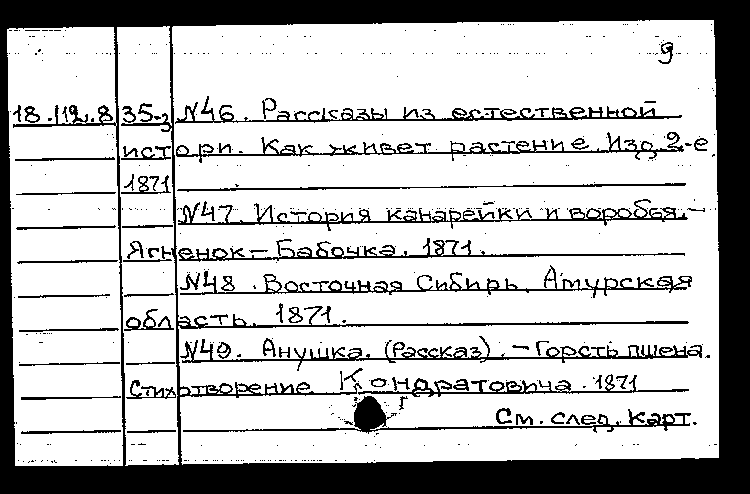 9
18.112.8 35-3 №46. Рассказы из естественной
истори. Как живет растение. Изд. 2-е.
1871
№47. История канарейки и воробья.-
Ягненок - Бабочка. 1871.
№48. Восточная Сибирь. Амурская
область. 1871.
№49. Анушка. (Рассказ). - Горсть пшена.
Стихотворение Кондратовича. 1871
См. след. карт.